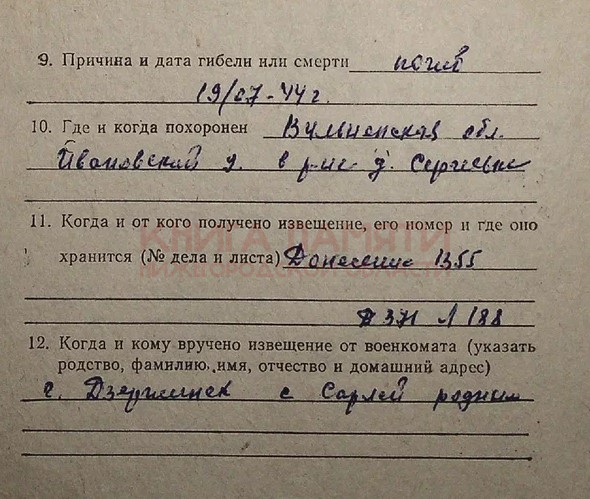 9. Причина и дата гибели или смерти погиб
19/07-44 г.
10. Где и когда похоронен Вильненская обл.
Ивановский у. в р-не д.
11. Когда и от кого получено извещение, его номер и где оно
КНИГА ПАМЯТИ
хранится (№ дела и листа) Донесение 1355
НИЖЕГОРОДСКОЙ ОБЛАСТИ
Д 371 Л 188
12. Когда и кому вручено извещение от военкомата (указать
родство, фамилию, имя, отчество и домашний адрес)
г. Дзержинск с Сарлей родным